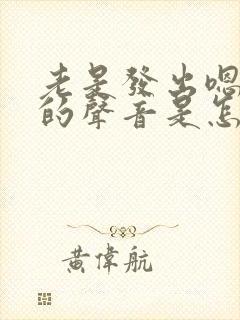 老是發出嗯
的聲音是怎
黃偉航